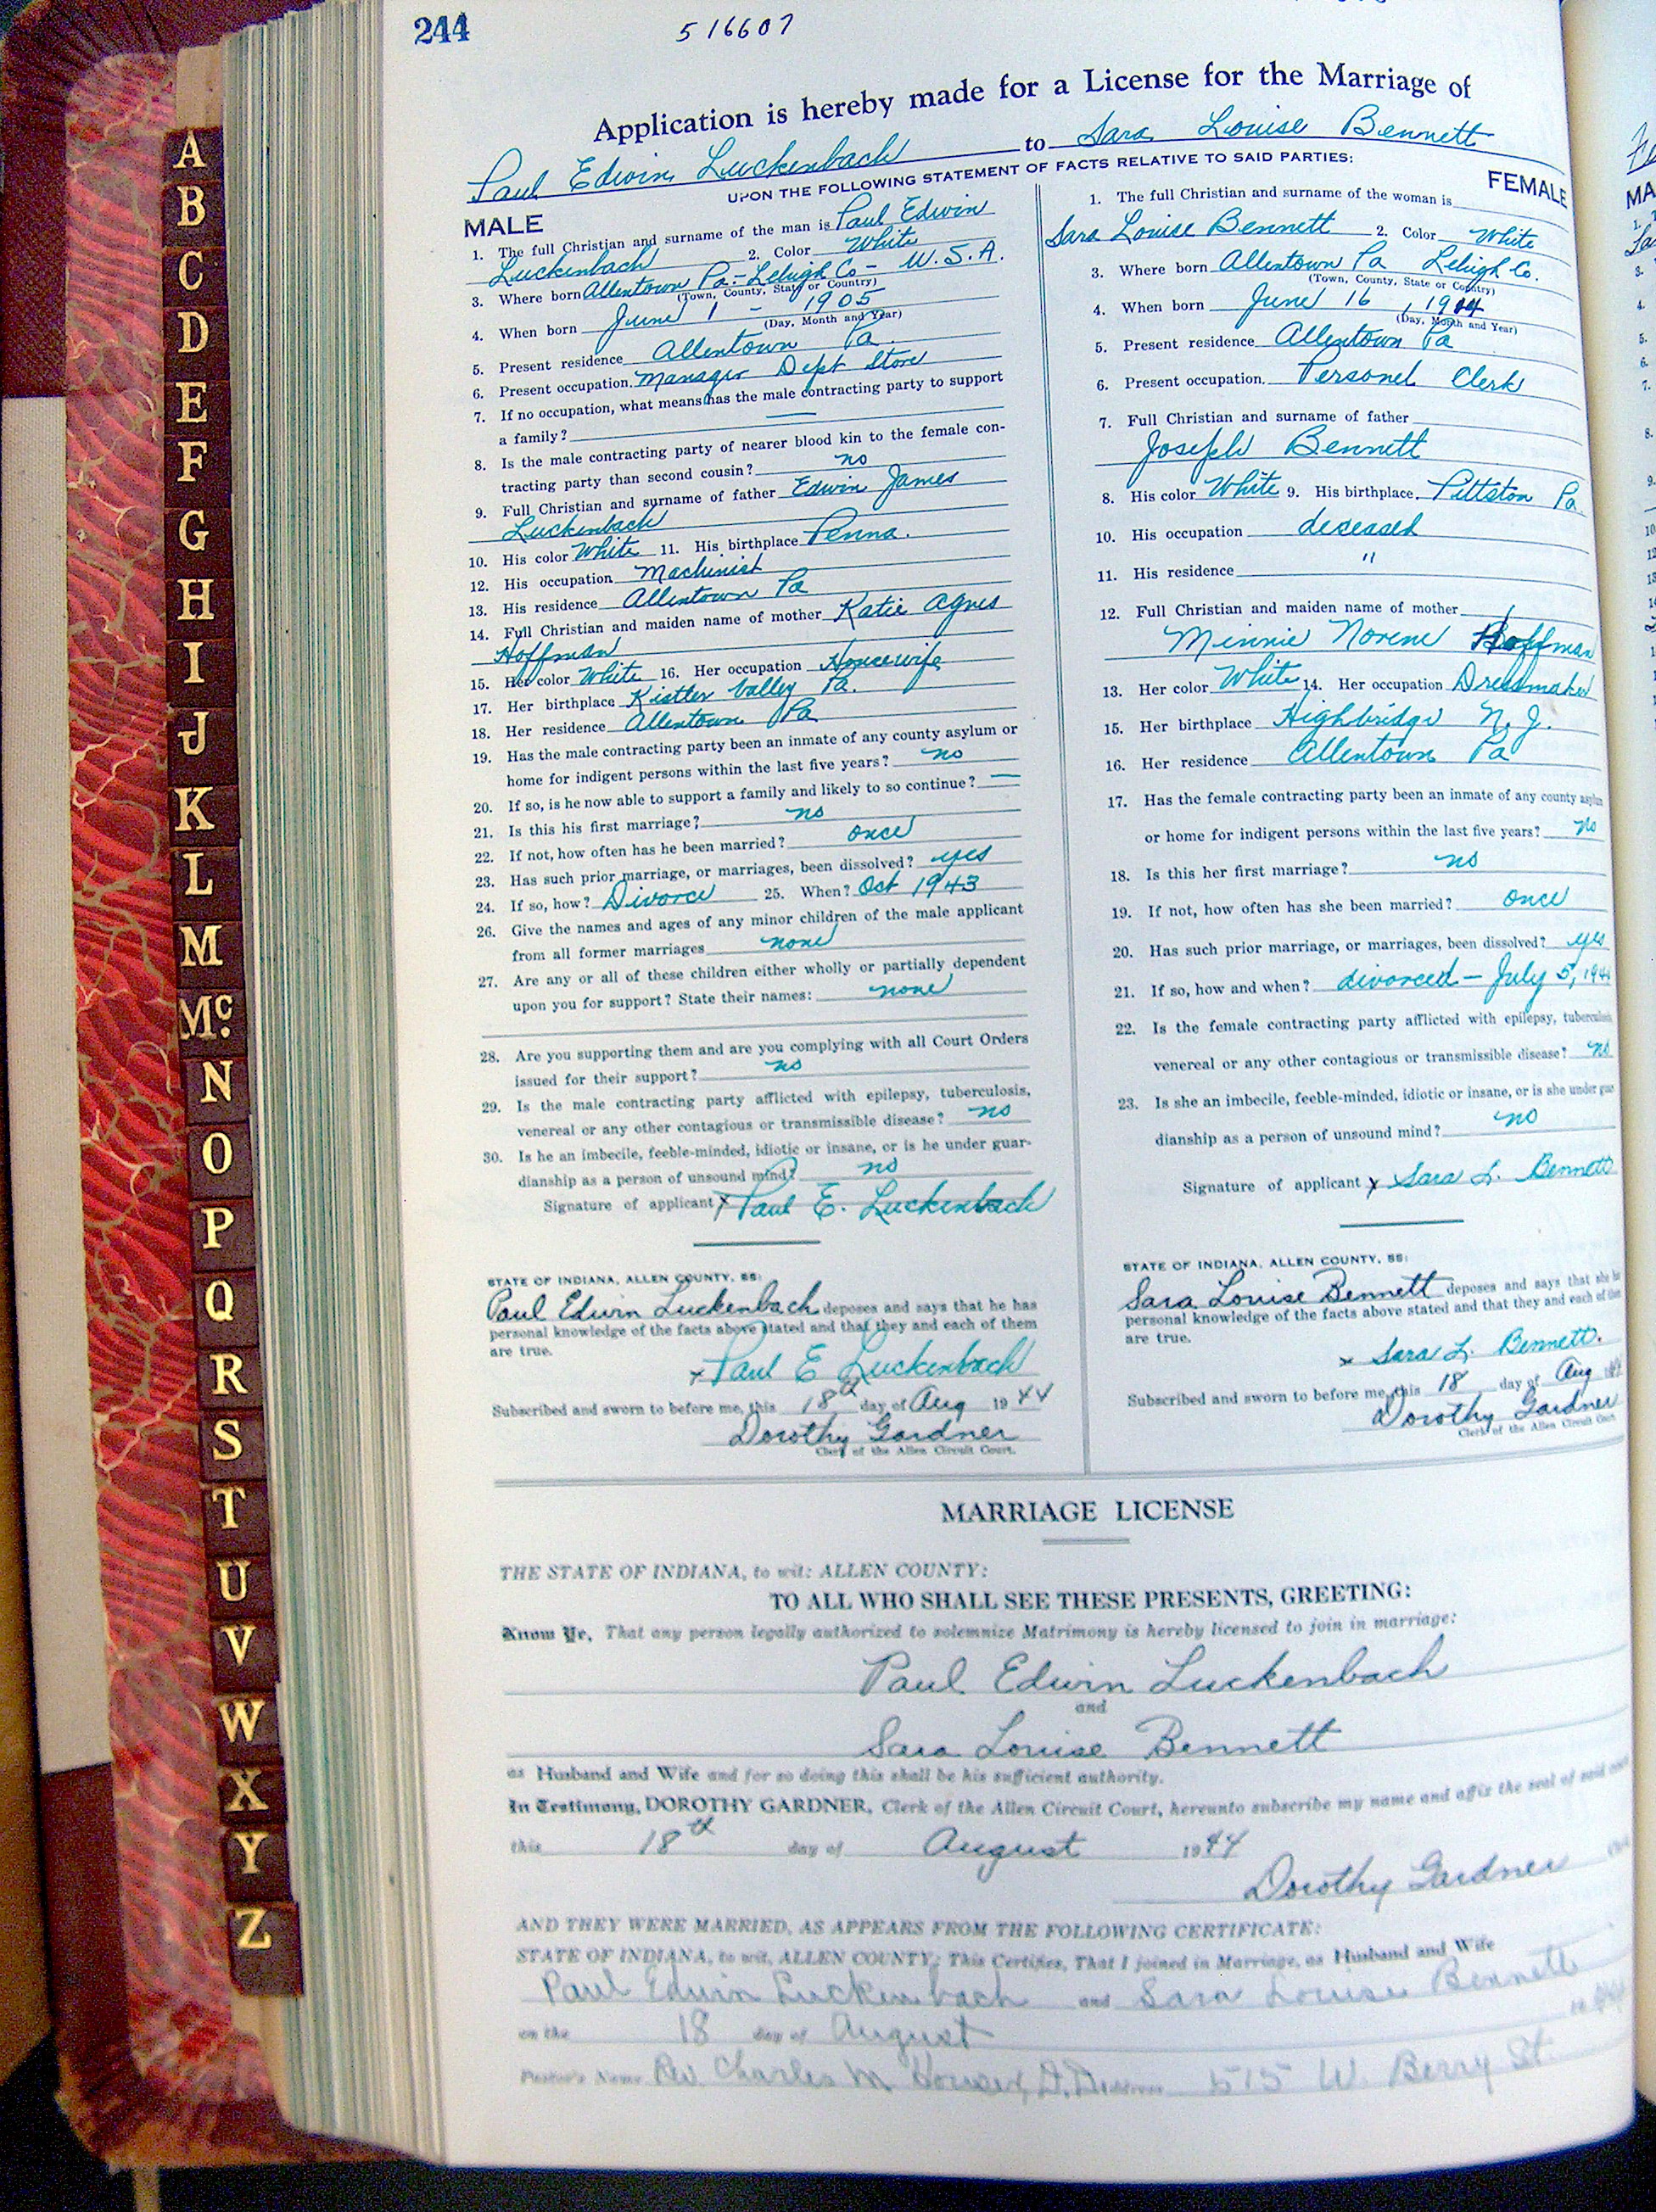 244
516607
Application is hereby made for a License for the Marriage of
Paul Edwin Luckenbach to Sara Louise Bennett
UPON THE FOLLOWING STATEMENT OF FACTS RELATIVE TO SAID PARTIES:
MALE
1. The full Christian and surname of the man is Paul Edwin
Luckenbach 2. Color White
3. Where born Allentown Pa - Lehigh Co - U.S.A.
(Town, County, State or Country)
4. When born June 1 - 1905
(Day, Month and Year)
5. Present residence Allentown Pa.
6. Present occupation. Manager Dept Store
7. If no occupation, what means has the male contracting party to support
a family? —
8. Is the male contracting party of nearer blood kin to the female con-
tracting party than second cousin? no
9. Full Christian and surname of father Edwin James
Luckenbach
10. His color White 11. His birthplace Penna.
12. His occupation Machinist
13. His residence Allentown Pa
14. Full Christian and maiden name of mother Katie Agnes
Hoffman
15. Her color White 16. Her occupation Housewife
17. Her birthplace Kistler Valley Pa.
18. Her residence Allentown Pa
19. Has the male contracting party been an inmate of any county asylum or
home for indigent persons within the last five years? no
20. If so, is he now able to support a family and likely to so continue? —
21. Is this his first marriage? no
22. If not, how often has he been married? once
23. Has such prior marriage, or marriages, been dissolved? yes
24. If so, how? Divorce 25. When? Oct 1943
26. Give the names and ages of any minor children of the male applicant
from all former marriages none
27. Are any or all of these children either wholly or partially dependent
upon you for support? State their names: none
28. Are you supporting them and are you complying with all Court Orders
issued for their support? no
29. Is the male contracting party afflicted with epilepsy, tuberculosis,
venereal or any other contagious or transmissible disease? no
30. Is he an imbecile, feeble-minded, idiotic or insane, or is he under guar-
dianship as a person of unsound mind? no
Signature of applicant x Paul E. Luckenbach
STATE OF INDIANA, ALLEN COUNTY, SS:
Paul Edwin Luckenbach deposes and says that he has
personal knowledge of the facts above stated and that they and each of them
are true.
x Paul E Luckenbach
Subscribed and sworn to before me, this 18th day of Aug 1944
Dorothy Gardner
Clerk of the Allen Circuit Court.
FEMALE
1. The full Christian and surname of the woman is
Sara Louise Bennett 2. Color White
3. Where born Allentown Pa Lehigh Co.
(Town, County, State or Country)
4. When born June 16, 1904
(Day, Month and Year)
5. Present residence Allentown Pa
6. Present occupation. Personel Clerk
7. Full Christian and surname of father
Joseph Bennett
8. His color White 9. His birthplace. Pittston Pa.
10. His occupation deceased
11. His residence "
12. Full Christian and maiden name of mother
Minnie Norene Hoffman
13. Her color White 14. Her occupation Dressmaker
15. Her birthplace Highbridge N.J.
16. Her residence Allentown Pa
17. Has the female contracting party been an inmate of any county asylum
or home for indigent persons within the last five years? no
18. Is this her first marriage? no
19. If not, how often has she been married? once
20. Has such prior marriage, or marriages, been dissolved? yes
21. If so, how and when? divorced - July 5, 194
22. Is the female contracting party afflicted with epilepsy, tuberculosis
venereal or any other contagious or transmissible disease? no
23. Is she an imbecile, feeble-minded, idiotic or insane, or is she under guar
dianship as a person of unsound mind? no
Signature of applicant x Sara L. Bennett
STATE OF INDIANA, ALLEN COUNTY, SS:
Sara Louise Bennett deposes and says that she has
personal knowledge of the facts above stated and that they and each of them
are true.
x Sara L. Bennett.
Subscribed and sworn to before me, this 18 day of Aug 1944
Dorothy Gardner
Clerk of the Allen Circuit Court
MARRIAGE LICENSE
THE STATE OF INDIANA, to wit: ALLEN COUNTY:
TO ALL WHO SHALL SEE THESE PRESENTS, GREETING:
Know Ye, That any person legally authorized to solemnize Matrimony is hereby licensed to join in marriage:
Paul Edwin Luckenbach
and
Sara Louise Bennett
as Husband and Wife and for so doing this shall be his sufficient authority.
In Testimony, DOROTHY GARDNER, Clerk of the Allen Circuit Court, hereunto subscribe my name and affix the seal of said
this 18th day of August 1944
Dorothy Gardner
AND THEY WERE MARRIED, AS APPEARS FROM THE FOLLOWING CERTIFICATE:
STATE OF INDIANA, to wit, ALLEN COUNTY: This Certifies, That I joined in Marriage, as Husband and Wife
Paul Edwin Luckenbach and Sara Louise Bennett
on the 18 day of August
Pastor's Name Rev. Charles M Houser, D.D. Address 515 W. Berry St.
A
B
C
D
E
F
G
H
I
J
K
L
M
Mc.
N
O
P
Q
R
S
T
U
V
W
X
Y
Z